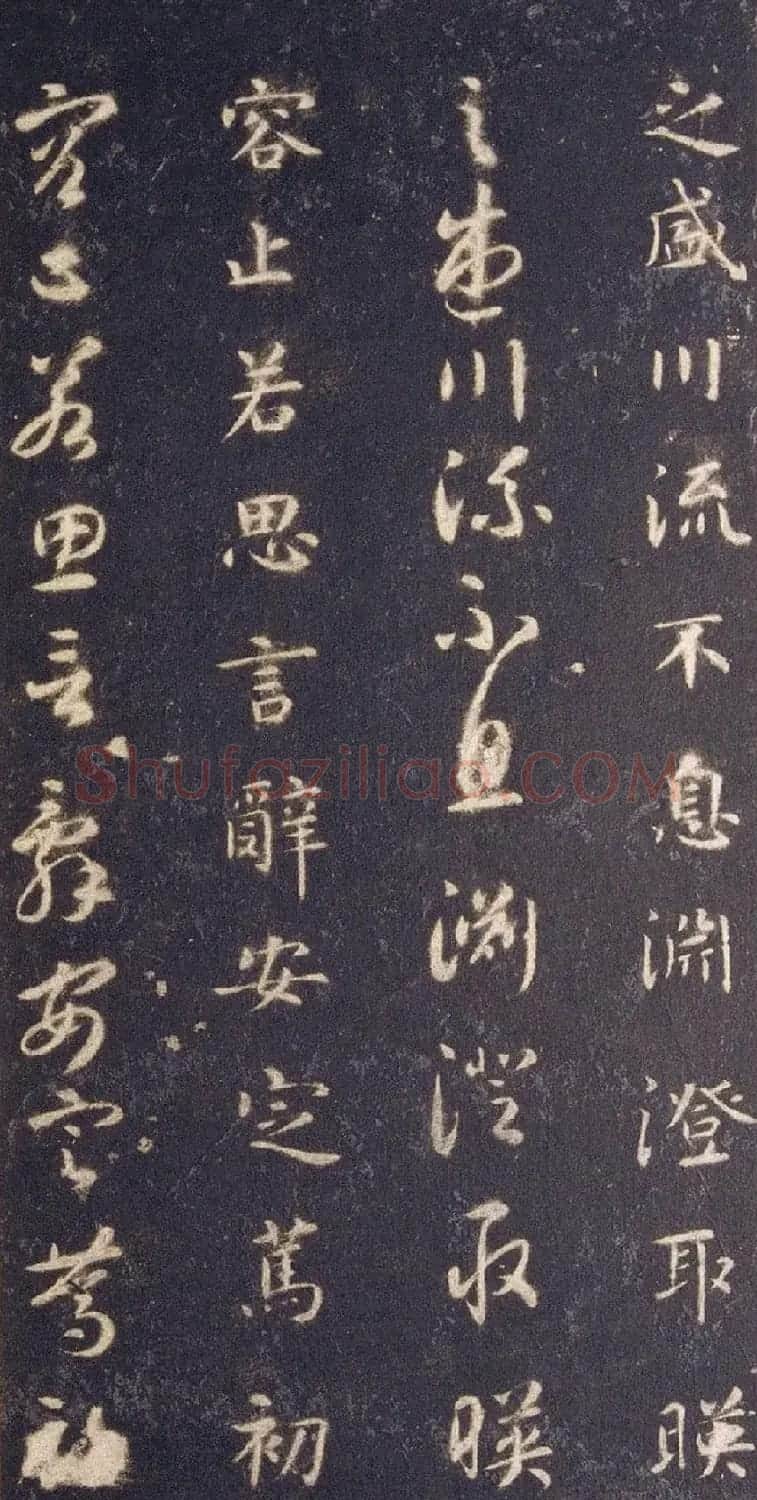 之盛川流不息淵澄取暎
之盛川流不息淵澄取暎
容止若思言辭安定篤初
容止若思言辭安定篤初
Shufaziliao.COM